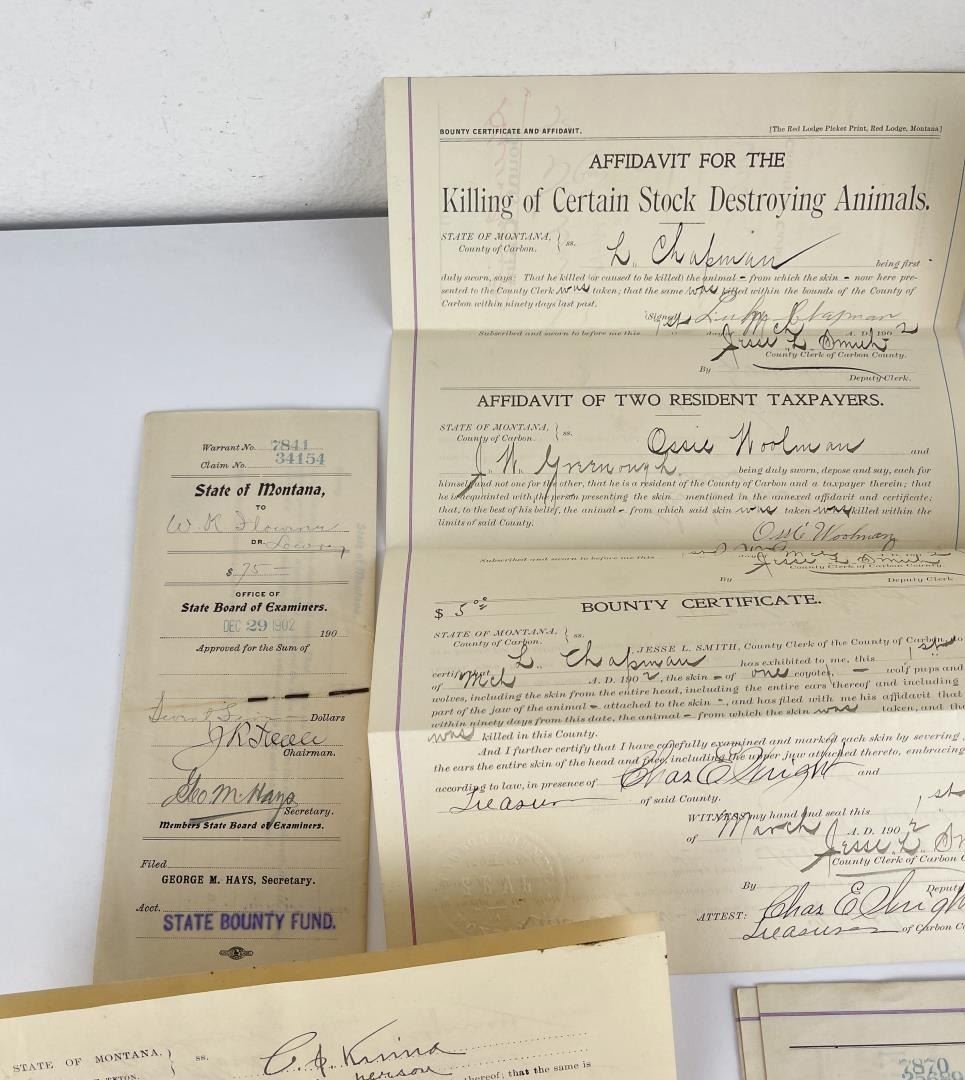 BOUNTY CERTIFICATE AND AFFIDAVIT. [The Red Lodge Picket Print, Red Lodge, Montana]
AFFIDAVIT FOR THE
Killing of Certain Stock Destroying Animals.
STATE OF MONTANA, } ss.
County of Carbon.
L. Chapman being first
duly sworn, says: That he killed (or caused to be killed) the animal - from which the skin - now here pre-
sented to the County Clerk was taken; that the same was killed within the bounds of the County of
Carbon within ninety days last past.
(Signed) Chapman
Subscribed and sworn to before me this 1st day of Mch A. D. 1902
Jesse L. Smith
County Clerk of Carbon County.
By
Deputy Clerk.
AFFIDAVIT OF TWO RESIDENT TAXPAYERS.
STATE OF MONTANA, } ss.
County of Carbon.
Ossie Woolman and
J. W. Greenough being duly sworn, depose and say, each for
himself and not one for the other, that he is a resident of the County of Carbon and a taxpayer therein; that
he is acquainted with the person presenting the skin mentioned in the annexed affidavit and certificate;
that, to the best of his belief, the animal - from which said skin was taken was killed within the
limits of said County.
Ossie Woolman
Subscribed and sworn to before me this
Jesse L. Smith
County Clerk of Carbon County
By Deputy Clerk
$ 5 00 BOUNTY CERTIFICATE.
STATE OF MONTANA, } ss.
County of Carbon.
JESSE L. SMITH, County Clerk of the County of Carbon, do
certify that L. Chapman has exhibited to me, this 1st
of Mch A. D. 1902, the skin - of one coyotes, - wolf pups and
wolves, including the skin from the entire head, including the entire ears thereof and including
part of the jaw of the animal - attached to the skin -, and has filed with me his affidavit that
within ninety days from this date, the animal - from which the skin was taken, and that
was killed in this County.
And I further certify that I have carefully examined and marked each skin by severing
the ears the entire skin of the head and face, including the upper jaw attached thereto, embracing
according to law, in presence of Chas E Wright and
Treasurer of said County.
WITNESS my hand and seal this 1st
of March A. D. 1902
Jesse L. Sm
County Clerk of Carbon C
By Deputy
ATTEST: Chas E Wright
Treasurer of Carbon Co
Warrant No. 7841
Claim No. 34154
State of Montana,
TO
W. R.
DR.
$ 75 -
OFFICE OF
State Board of Examiners.
DEC 29 1902 190
Approved for the Sum of
Dollars
Chairman.
Geo M Hays
Secretary.
Members State Board of Examiners.
Filed
GEORGE M. HAYS, Secretary.
Acct.
STATE BOUNTY FUND.
STATE OF MONTANA. } ss.
TETON.
person thereof; that the same is
7870